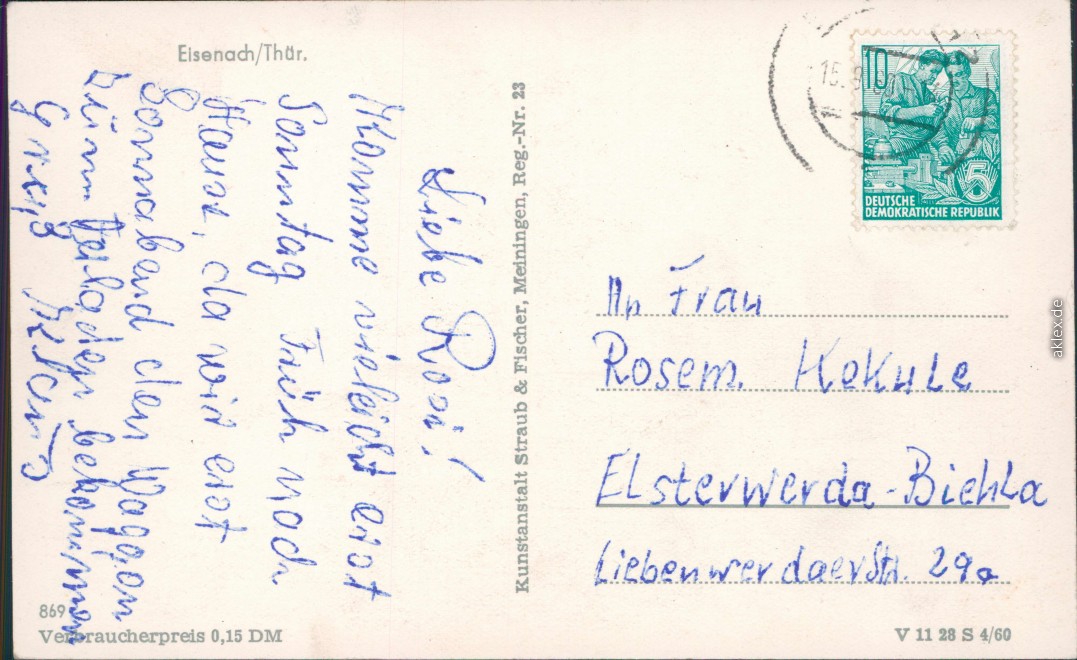 Eisenach/Thür.
Liebe Rosi!
Komme vieleicht erst
Sonntag Früh nach
Hause, da wir erst
Sonnabend den Waggon
zum Verladen bekommen
Gruß Klaus
869
Verbraucherpreis 0,15 DM
Kunstanstalt Straub & Fischer, Meiningen, Reg.-Nr. 23
10
DEUTSCHE
DEMOKRATISCHE REPUBLIK
5
An Frau
Rosem. Kekule
Elsterwerda-Biehla
Liebenwerdaerstr. 29a
V 11 28 S 4/60
aklex.de